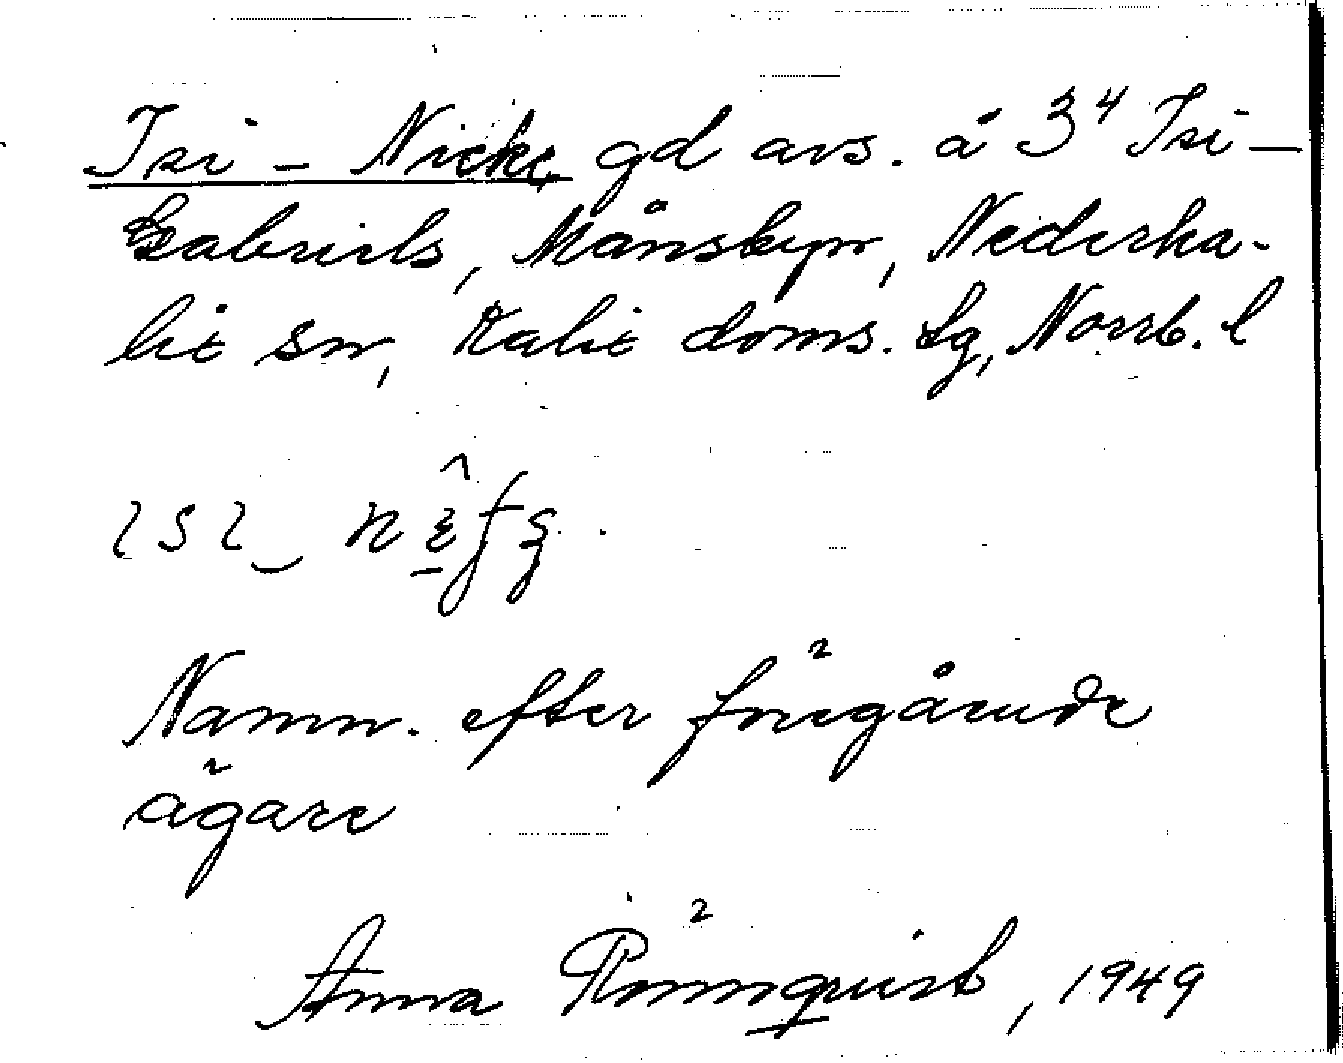 Isi-Nicke gd avs. å 3⁴ Isi-
Gabriels, Månsbyn, Nederka-
lix sn, Kalix doms. tg, Norrb. l
Namn. efter föregående
ägare
Anna Rönnquist, 1949